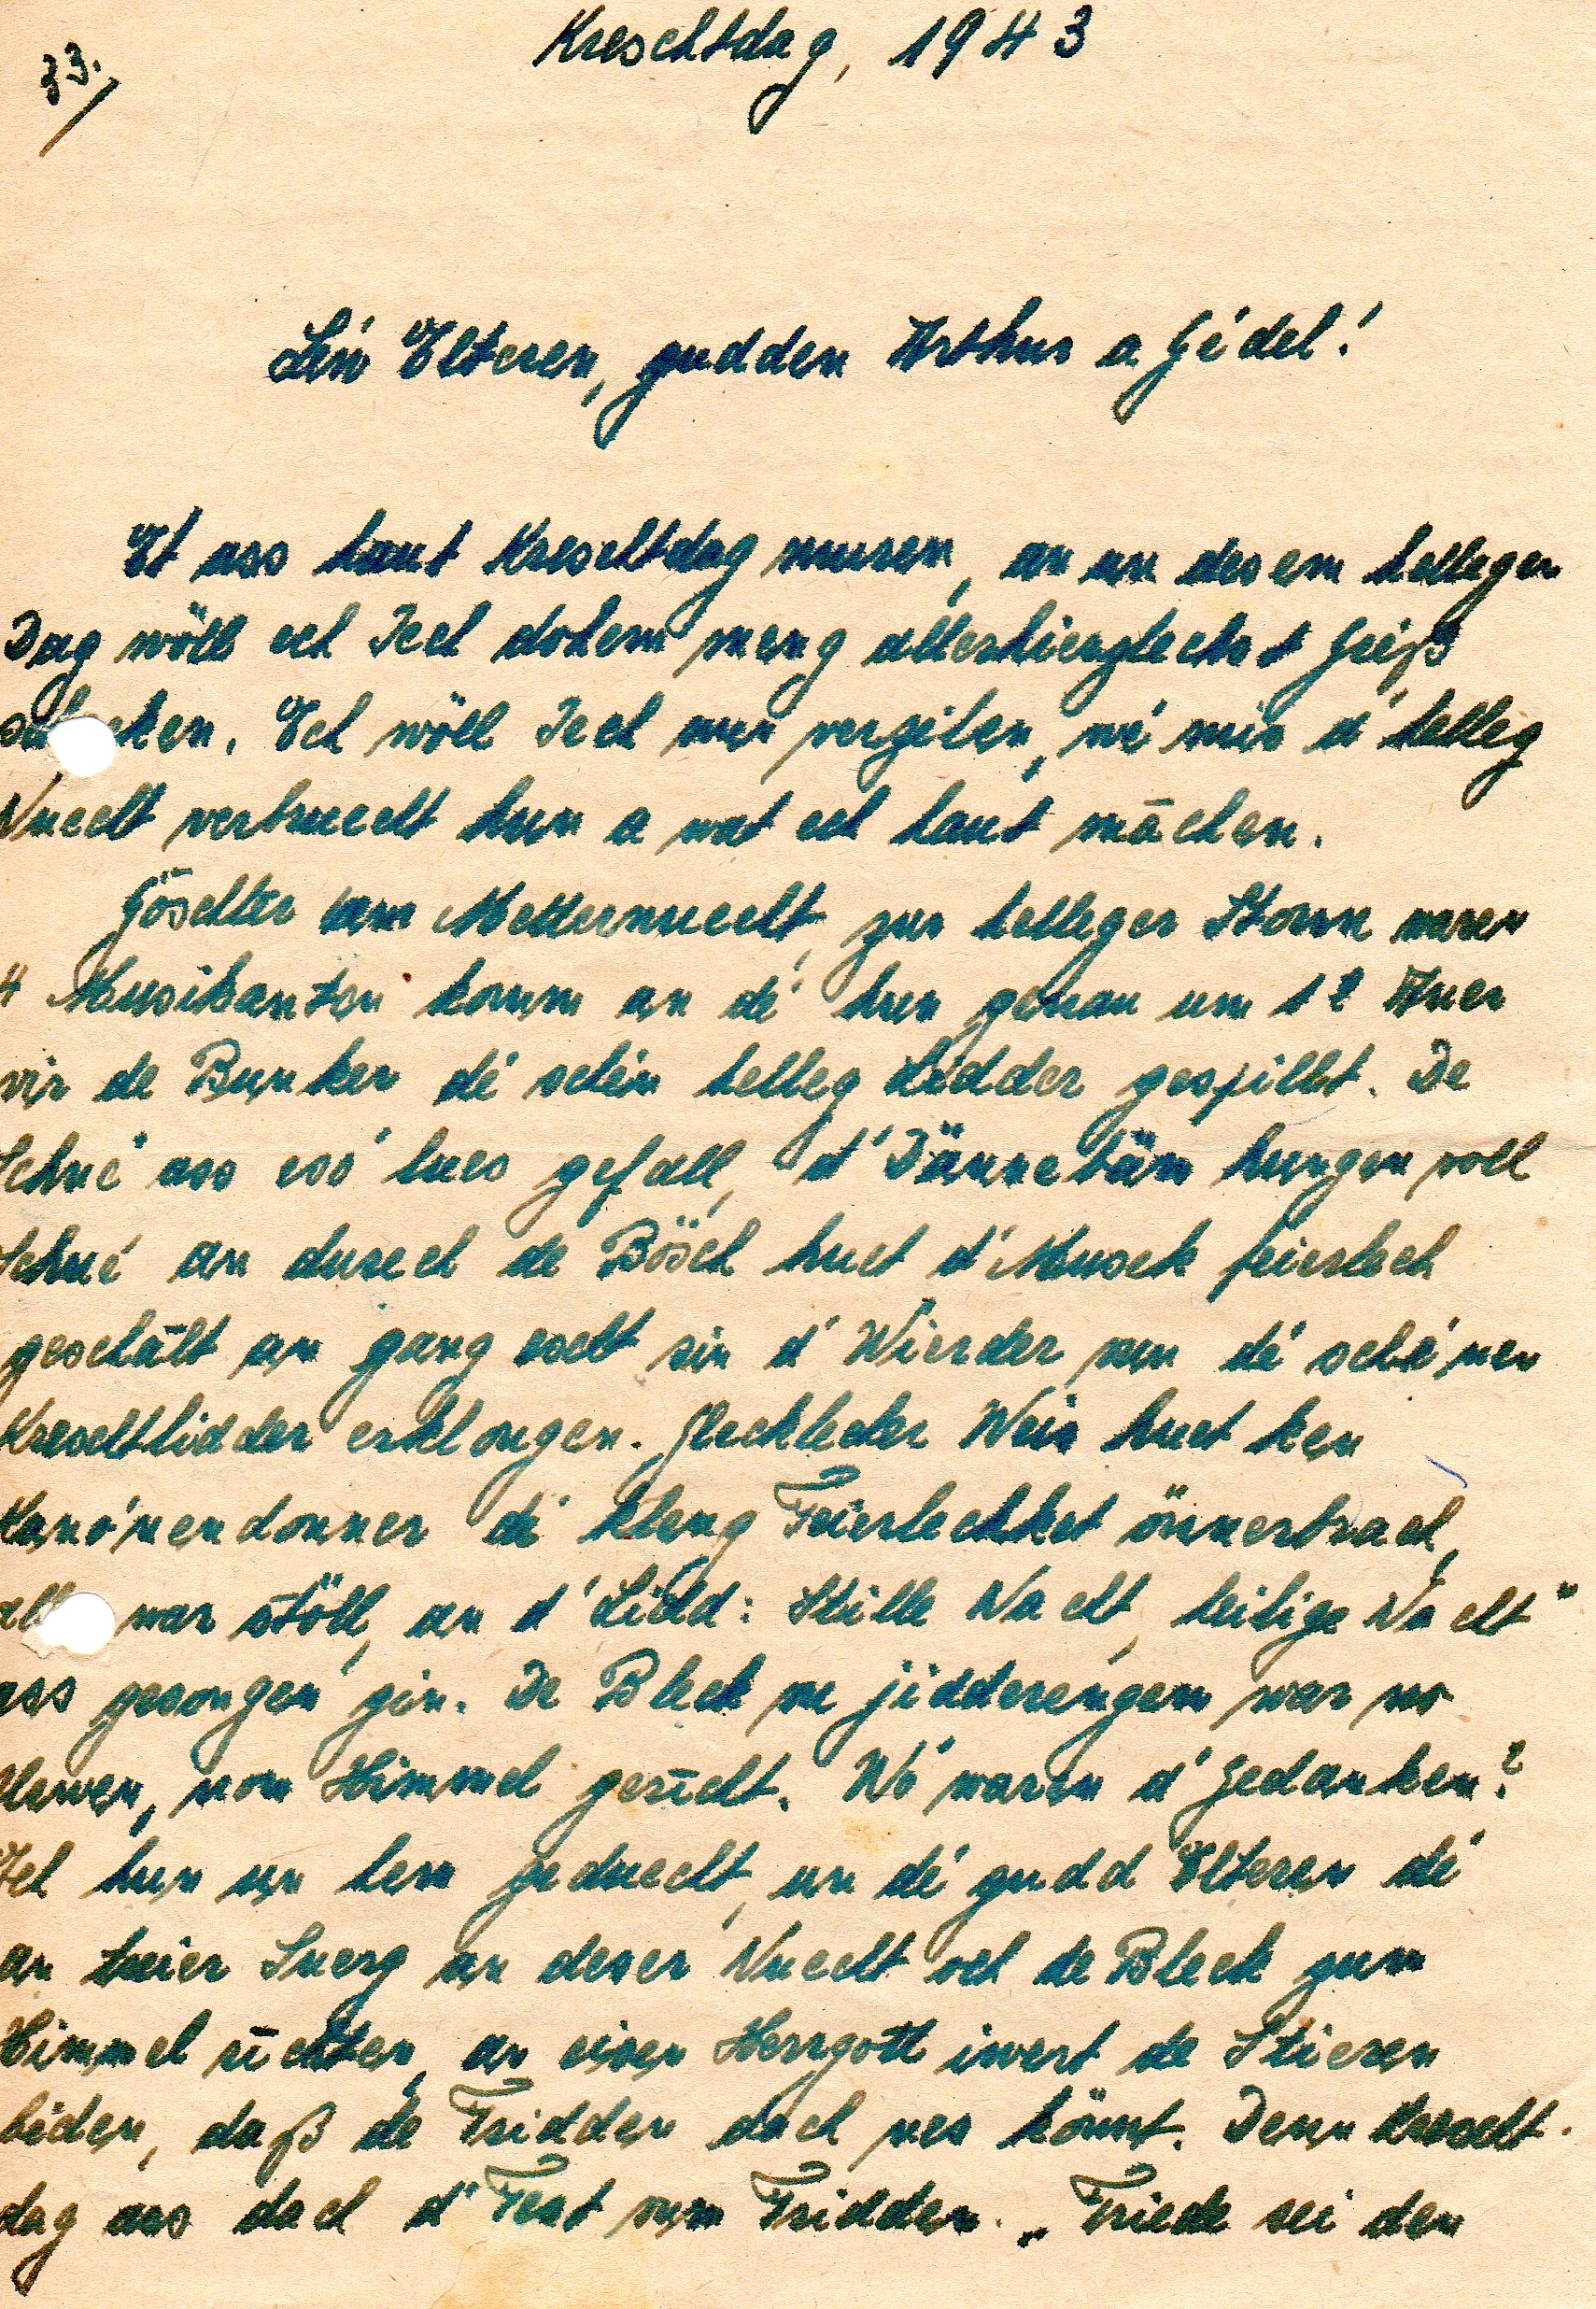 Kreschtdag, 1943
33.
Léw Elteren, gudden Arthur a Gédel!
Et ass haut Kreschtdag muren, an un desem hellegen
Dag wöll ech Iech dohem meng allerhierzlechst Gréiß
Ech wöll Iech nur verzielen, wé mir d'helleg
Nuecht verbruecht hun a wat ech haut mächen.
Göschter um Metternuecht, zur helleger Stonn waren
4 Musikanten komm an dé hun genau um 12 Auer
vir de Bunker dé schéin helleg Lidder gespillt. De
Schné ass esó lues gefall, d'Dännebäm hungen voll
Schné an durech de Bösch huet d'Musek feierlech
geschält an gang escht sin d'Wierder vun dé schéinen
Kreschtlidder erklongen. Glecklecher Weis huet ken
Kanónendonner dé kleng Feierlechket önnerbrach,
war stöll, an d'Lidd: Stille Nacht, heilige Nacht"
ass gesongen gin. De Bleck ve jidderéngem war no
uewen, nom Himmel geriicht. Wó waren d'Gedanken?
Ech hun un hem geduecht, un dé gudd Elteren dé
an heier Suerg an deser Nuecht och de Bleck zum
Himmel riichten, an eisen Herrgott iwert de Stieren
biëden, daß de Fridden dach nes könnt. Denn Krescht-
dag ass dach d'Fest vum Fridden. „Friede sei den